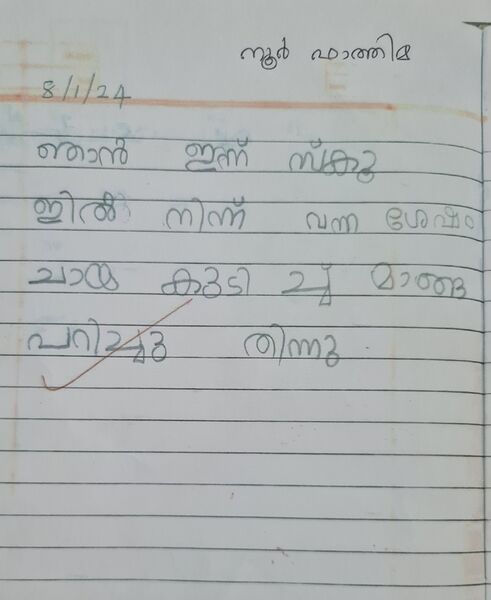 നൂർ ഫാത്തിമ
8/1/24
ഞാൻ ഇന്ന് സ്കൂ
ളിൽ നിന്ന് വന്ന ശേഷം
ചായ കുടി ച്ച് മാങ്ങ
പറിച്ചു തിന്നു